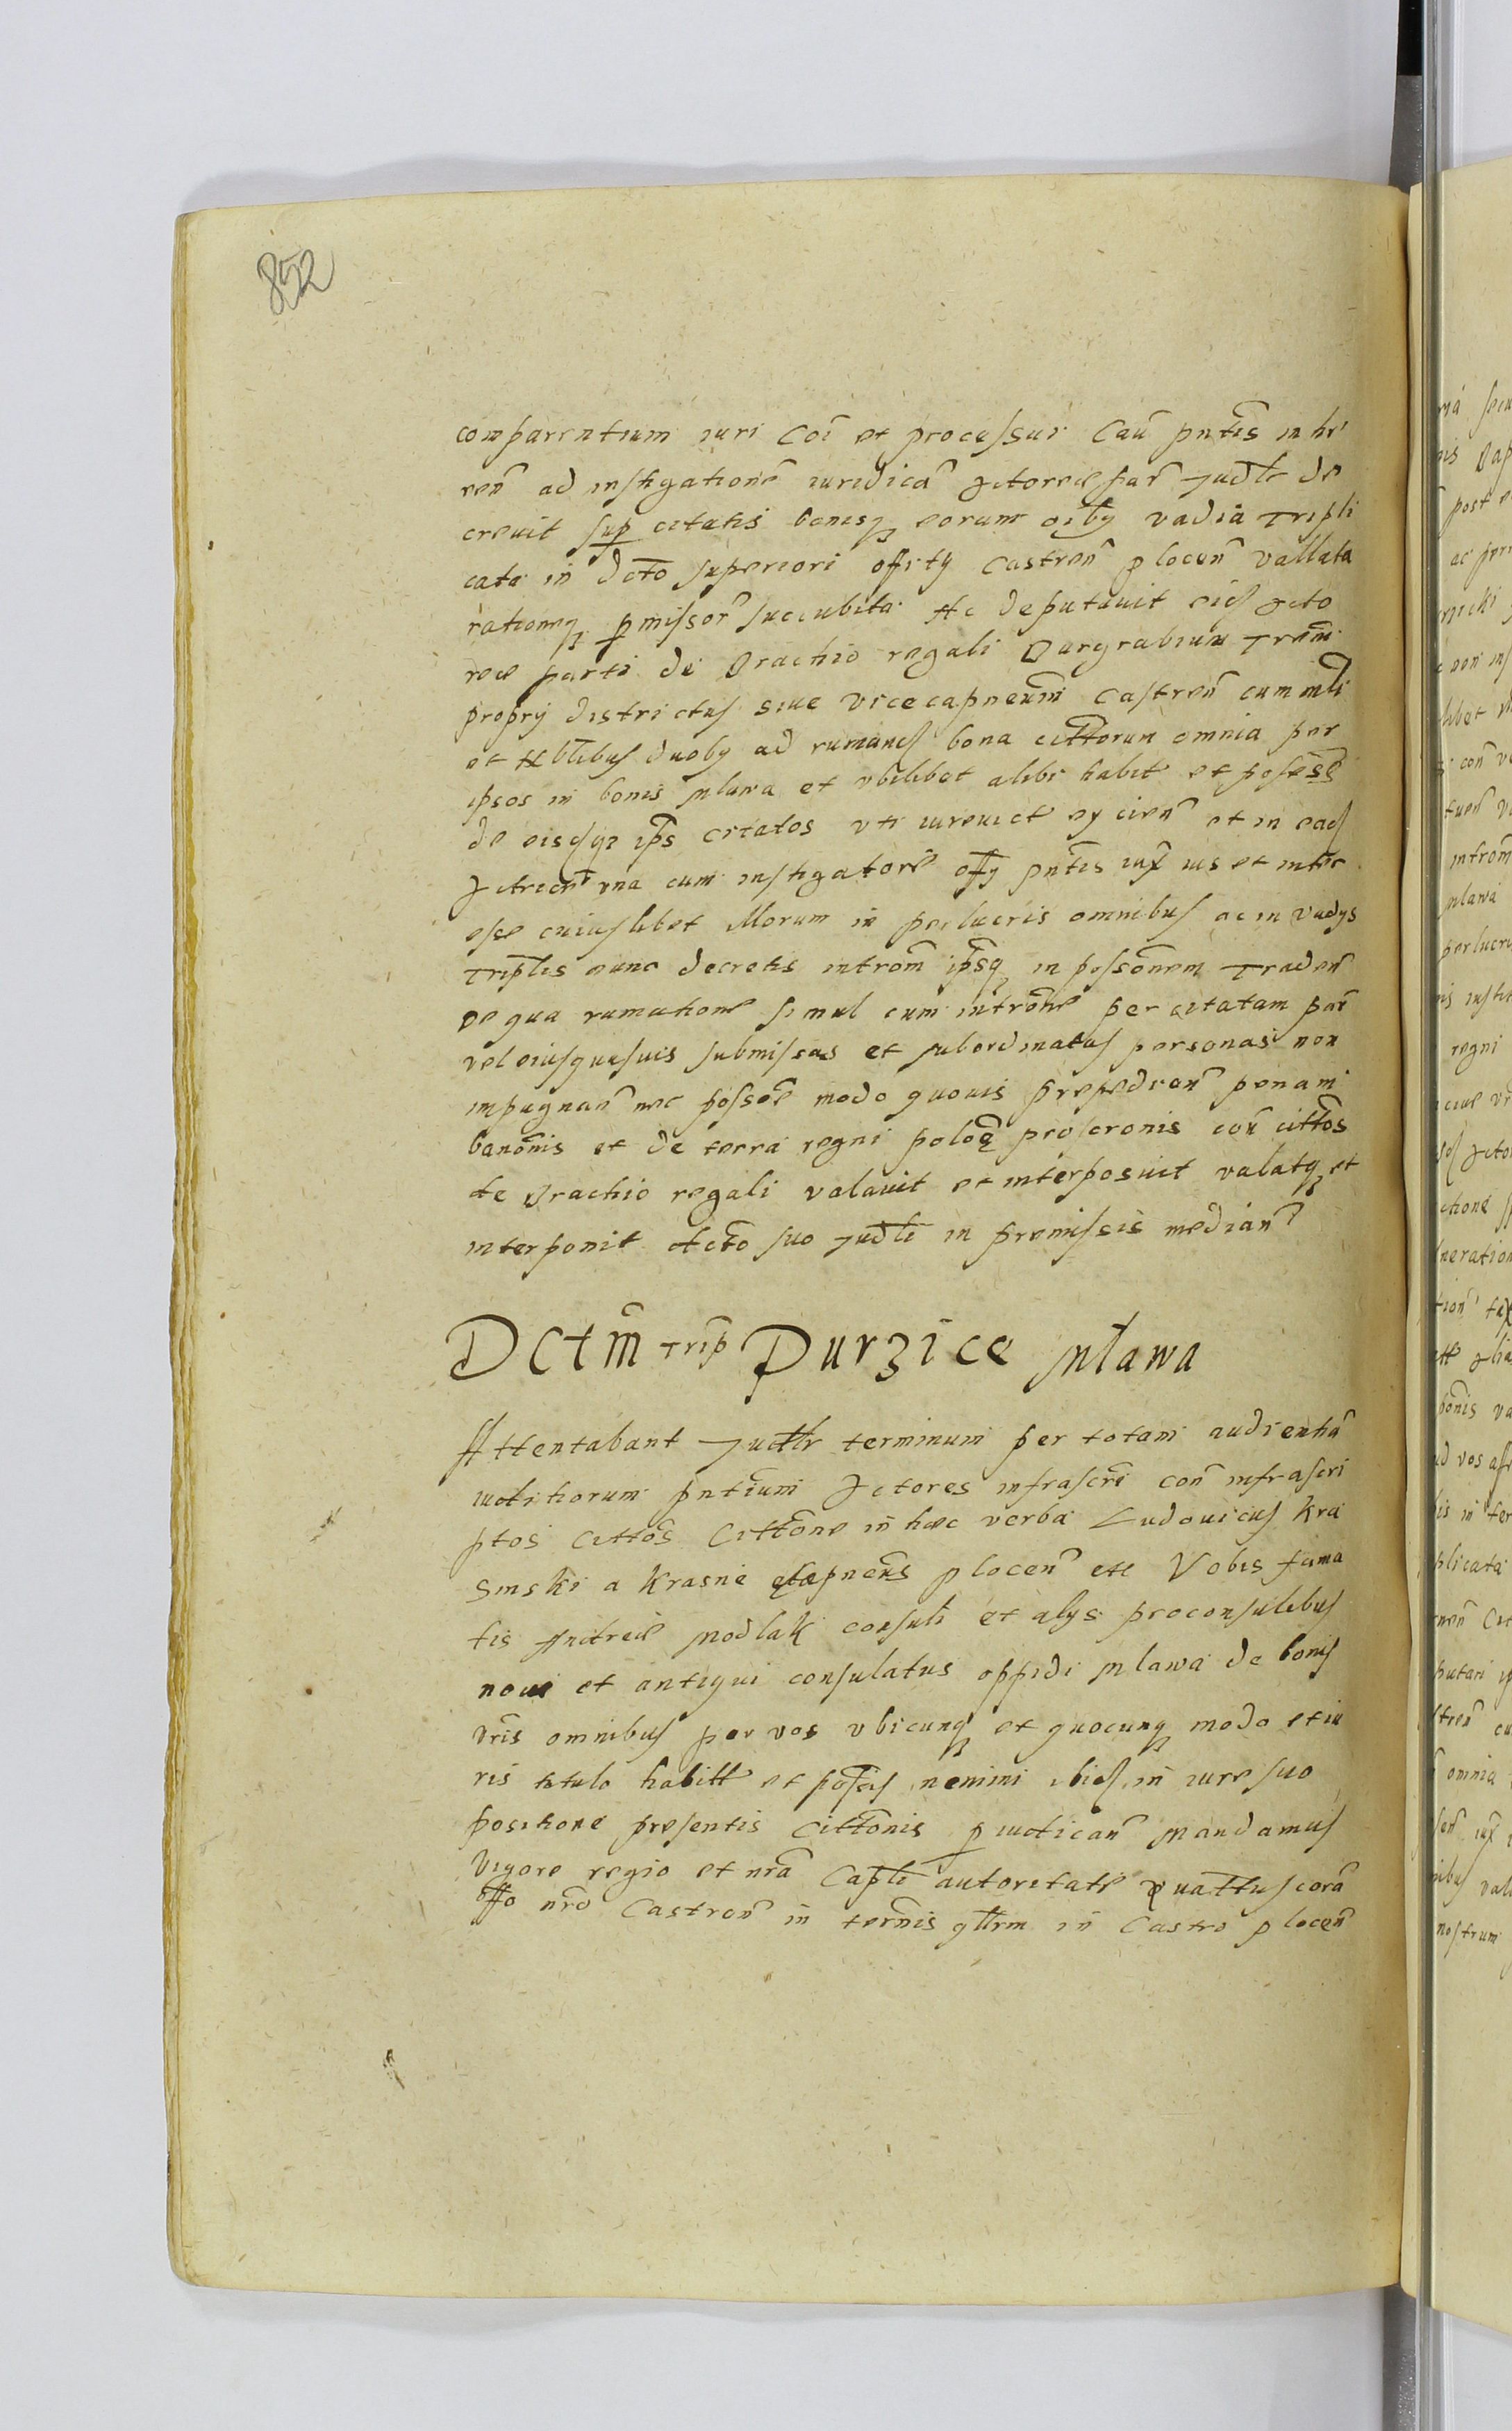 852
comparentium iuri Coi et processui Cau pntis in he
ren ad instigatione iuridica actoreæ par Judlr de
creuit sup citatis bonisq eorum oiby vadia Tripli
cata in dcto superiori offity Castren plocen vallata
rationeq pmissor succubita Ac deputauit eid acto
reæ parti de Brachio regali Burgrabium Tram
proprÿ districtus siue vicecapneum Castren cum mli
et nblibus duoby ad rumand bona cittorum omnia per
ipsos in bonis Mlawa et vbilibet alibi habit et possess
de eisdqz ips citatos vti iureuict eÿcien et in ead
Actricem vna cum instigatore offÿ pntis iux ius et inter
esse cuiuslibet illorum in perlucris omnibus ac in vadÿs
Triplis nunc decretis introm ipsq in possonem Traden
De qua rumatione simul cum introne per citatam par
vel eiusquesuis submissas et subordinatas personas non
impugnan nec possoe modo quouis prepedien penam
banonis et de terra regni poloe proscronis con cittos
de Brachio regali valauit et interposuit valatq et
interponit dcto suo Judli in premissis median
Dctm Trip Durzice Mlawa
Attentabant Judlr terminum per totam audientia
iudi tiorum pntium Actores infrascri con infrascri
ptos cittos Cittone in hæc verba Ludouicus Kra
sinski a Krasne Capneus plocen etc Vobis fama
tis Andreæ Modlak consuli et alÿs proconsulibus
noui et antiqui consulatus oppidi Mlawa de bonis
vris omnibus per vos vbicunq et quocunq modo et iu
ris titulo habitt et possis nemini ibid in iure suo
positione presentis Cittonis p iudican Mandamus
Vigore regio et nra Capli autoritate Quattus cora
offo nro Castren in ternis qllrm in Castro plocen